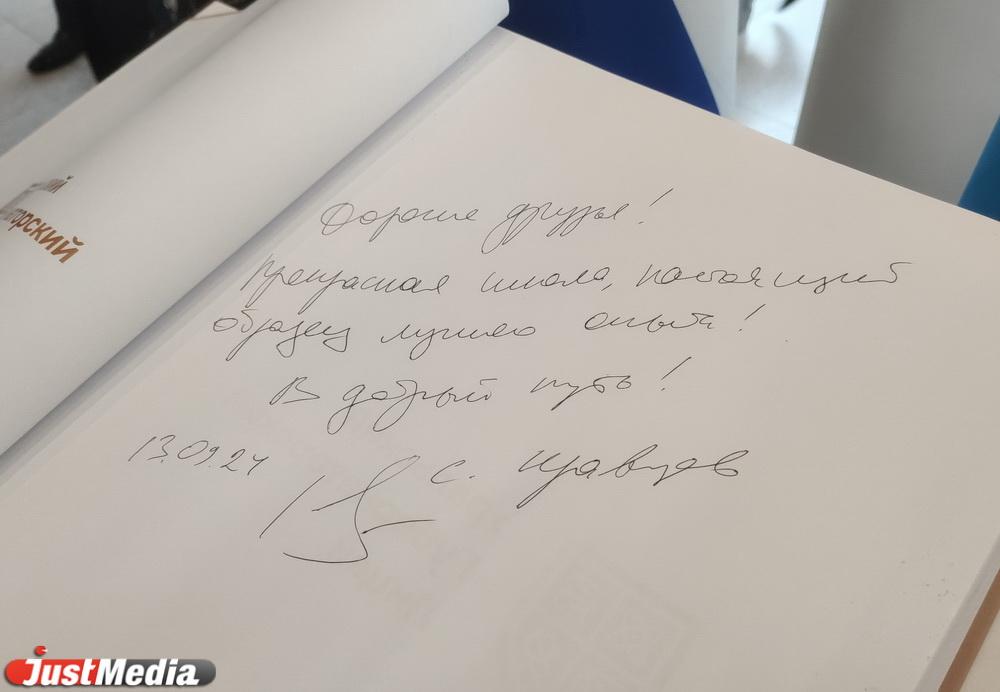 ий
горский
Дорогие друзья!
Прекрасная школа, настоящий
образец лучшего опыта!
В добрый путь!
13.09.24
С. Кравцов
JustMedia